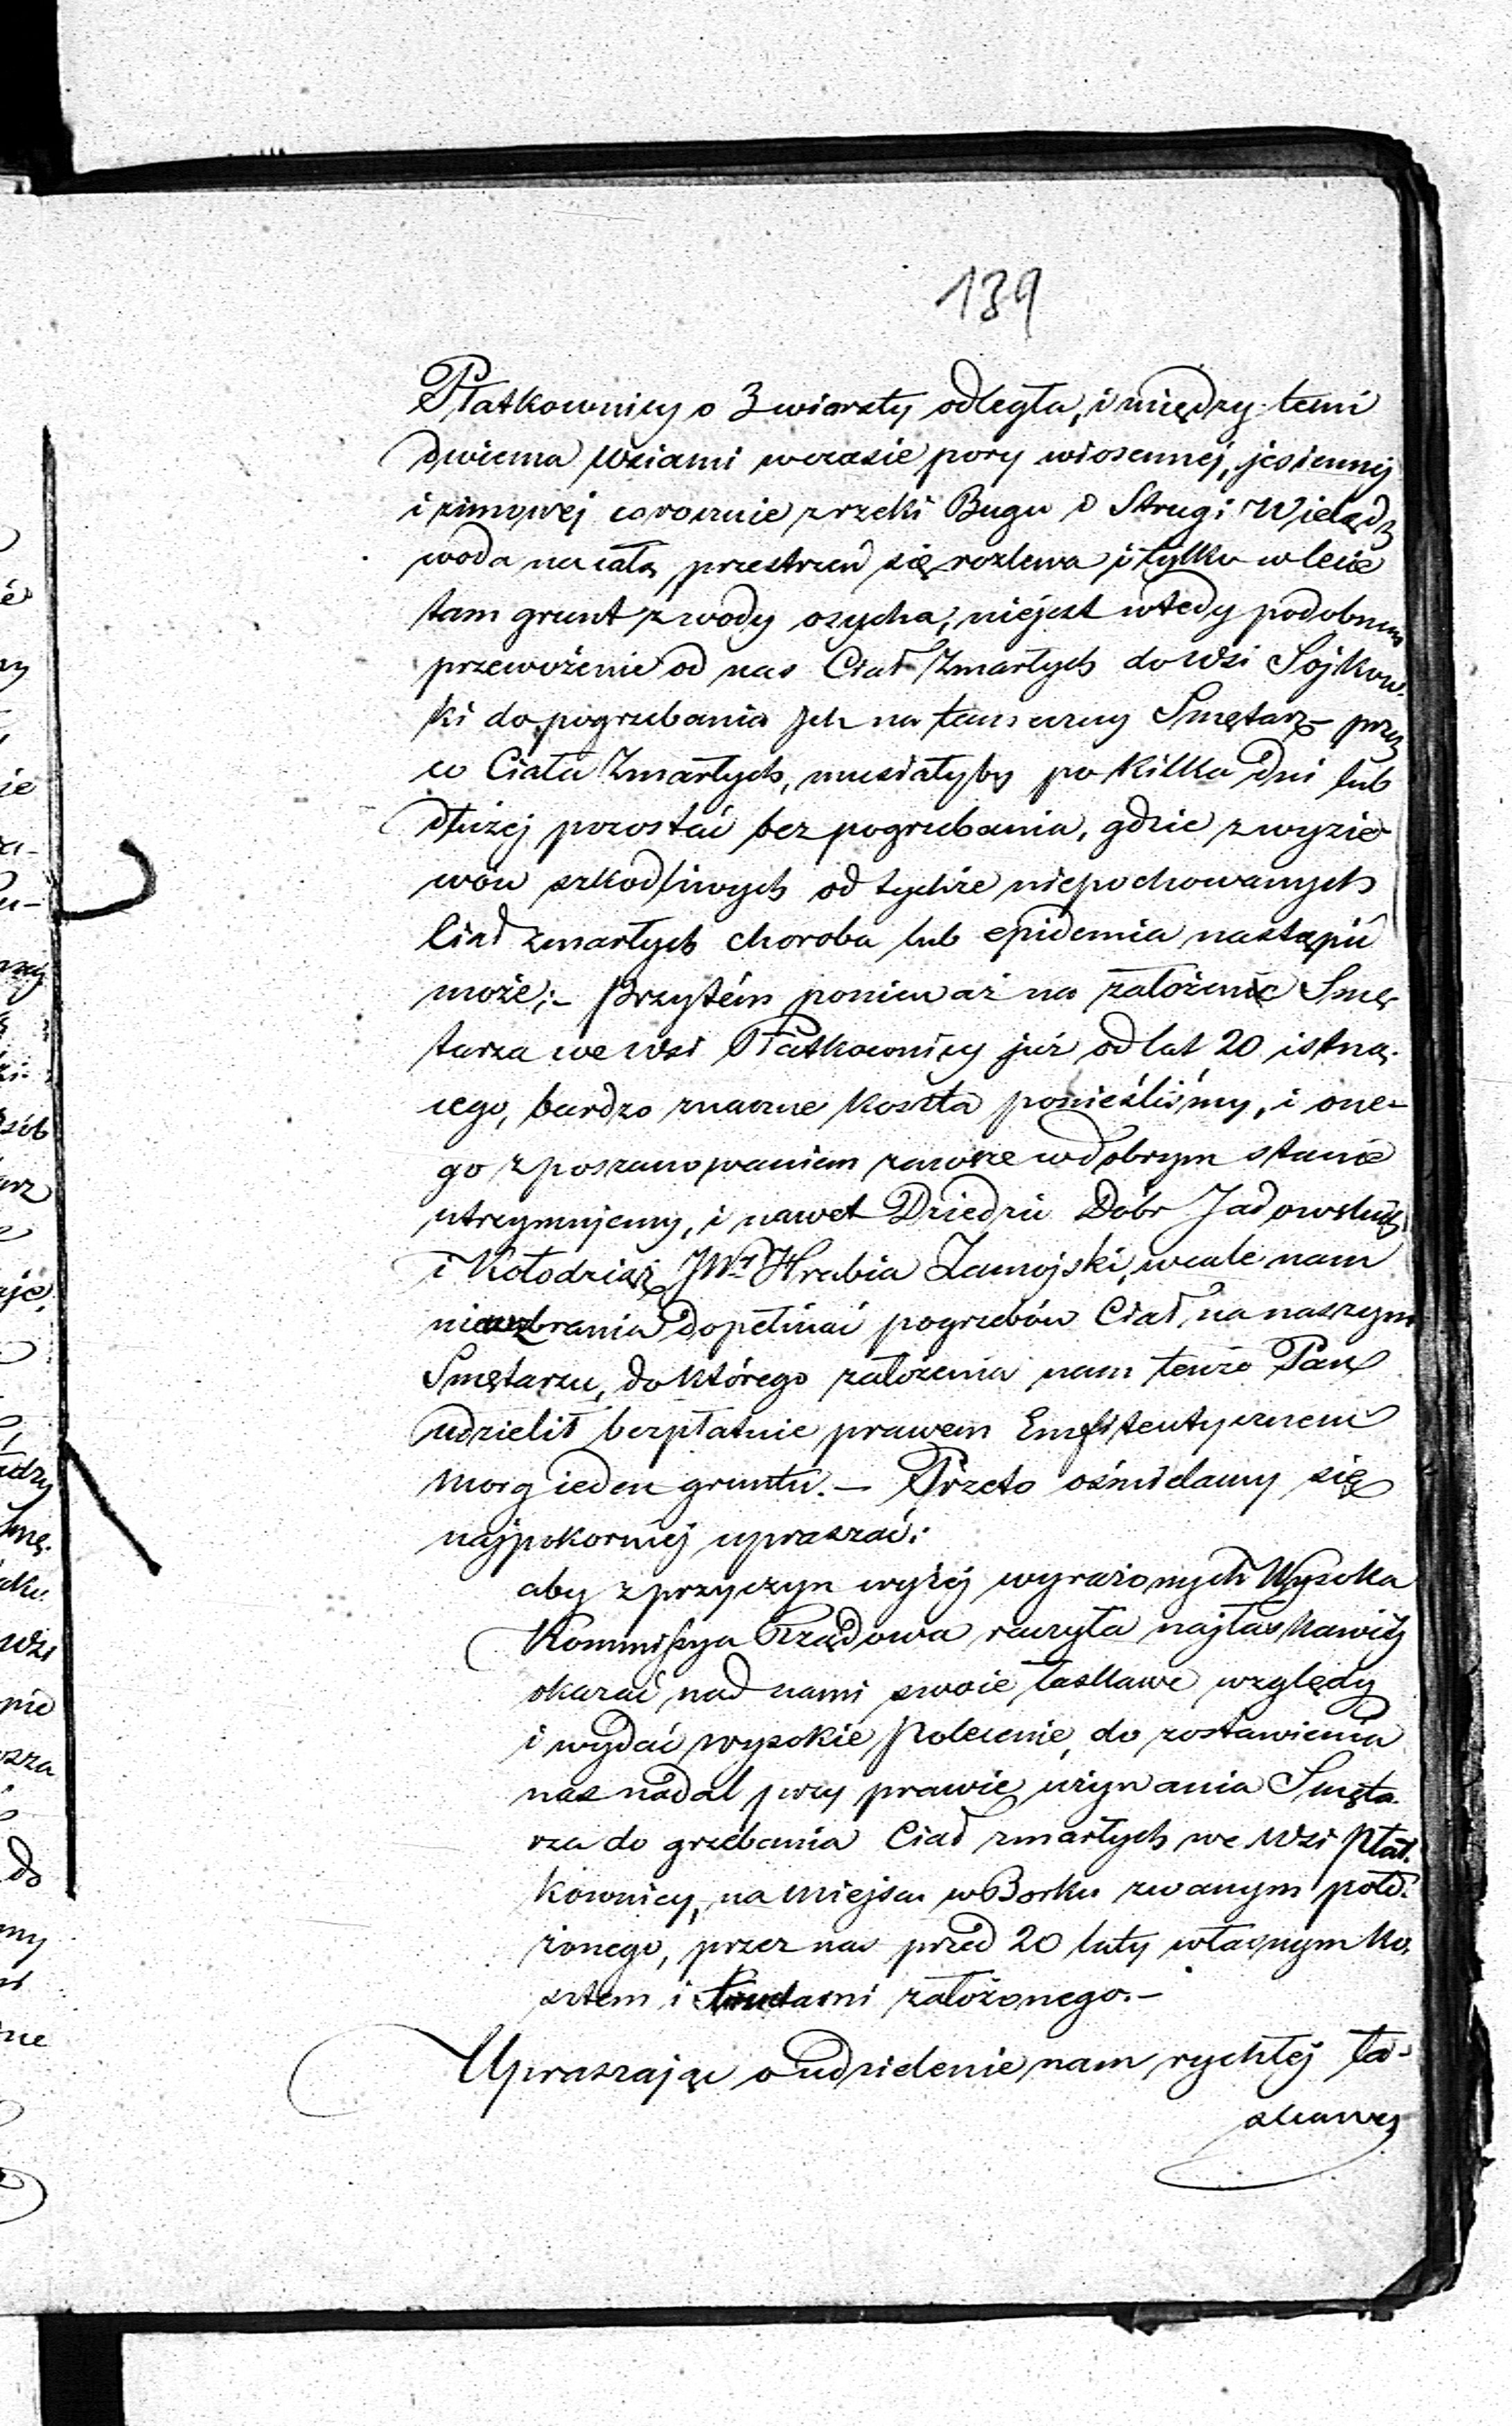 139
Płatkownicy o 3 wiorsty odległa, i między temi
dwiema wsiami wczasie pory wiosennej, jesiennej
i zimowej corocznie z rzeki Bugu i Strugi
woda na całą przestrzeń się rozlewa i tylko w lecie
tam grunt z wody osycha; niejest wtedy podobnem
przewożenie od nas Ciał Zmarłych do Wsi Sójkow-
ki do pogrzebania Jch na tameczny Smętarz – przez
co Ciała Zmarłych, musiałyby po kilka dni lub
dłużej pozostać bez pogrzebania, gdzie z wyzie-
wów szkodliwych od tychże niepochowanych
Ciał zmarłych choroba lub epidemia nastąpić
może; – przytém ponieważ na założenie Smę-
tarza we wsi Płatkownicy już od lat 20 istną-
cego, bardzo znaczne koszta ponieśliśmy, i one-
go z poszanowaniem zawsze w dobrym stanie
utrzymujemy, i nawet Dziedzic Dóbr Jadowskich
i Kołodziąż JW. Hrabia Zamojski, wcale nam
niewzbrania dopełniać pogrzebów Ciał, na naszym
Smętarzu, do którego założenia nam tenże Pan
udzielił bezpłatnie prawem Emfiteutycznem
morg ieden gruntu. – Przeto ośmielamy się
najpokorniej upraszać:
aby z przyczyn wyżej wyrażonych Wysoka
Kommissya Rządowa raczyła najłaskawiej
okazać nad nami swoie łaskawe względy
i wydać wysokie polecenie, do zostawienia
nas nadal przy prawie używania Smęta-
rza do grzebania Ciał zmarłych we wsi Płat-
kownicy, na miejscu w Borku zwanym poło-
żonego, przez nas przed 20 laty własnym ko-
sztem i założonego. –
Upraszając o udzielenie nam rychłej ła-
skawej